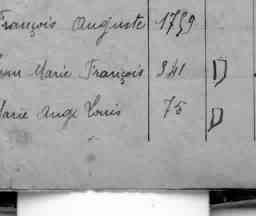 François Auguste 1759
Marie François 341 D
Marie Ange Louis 75 D